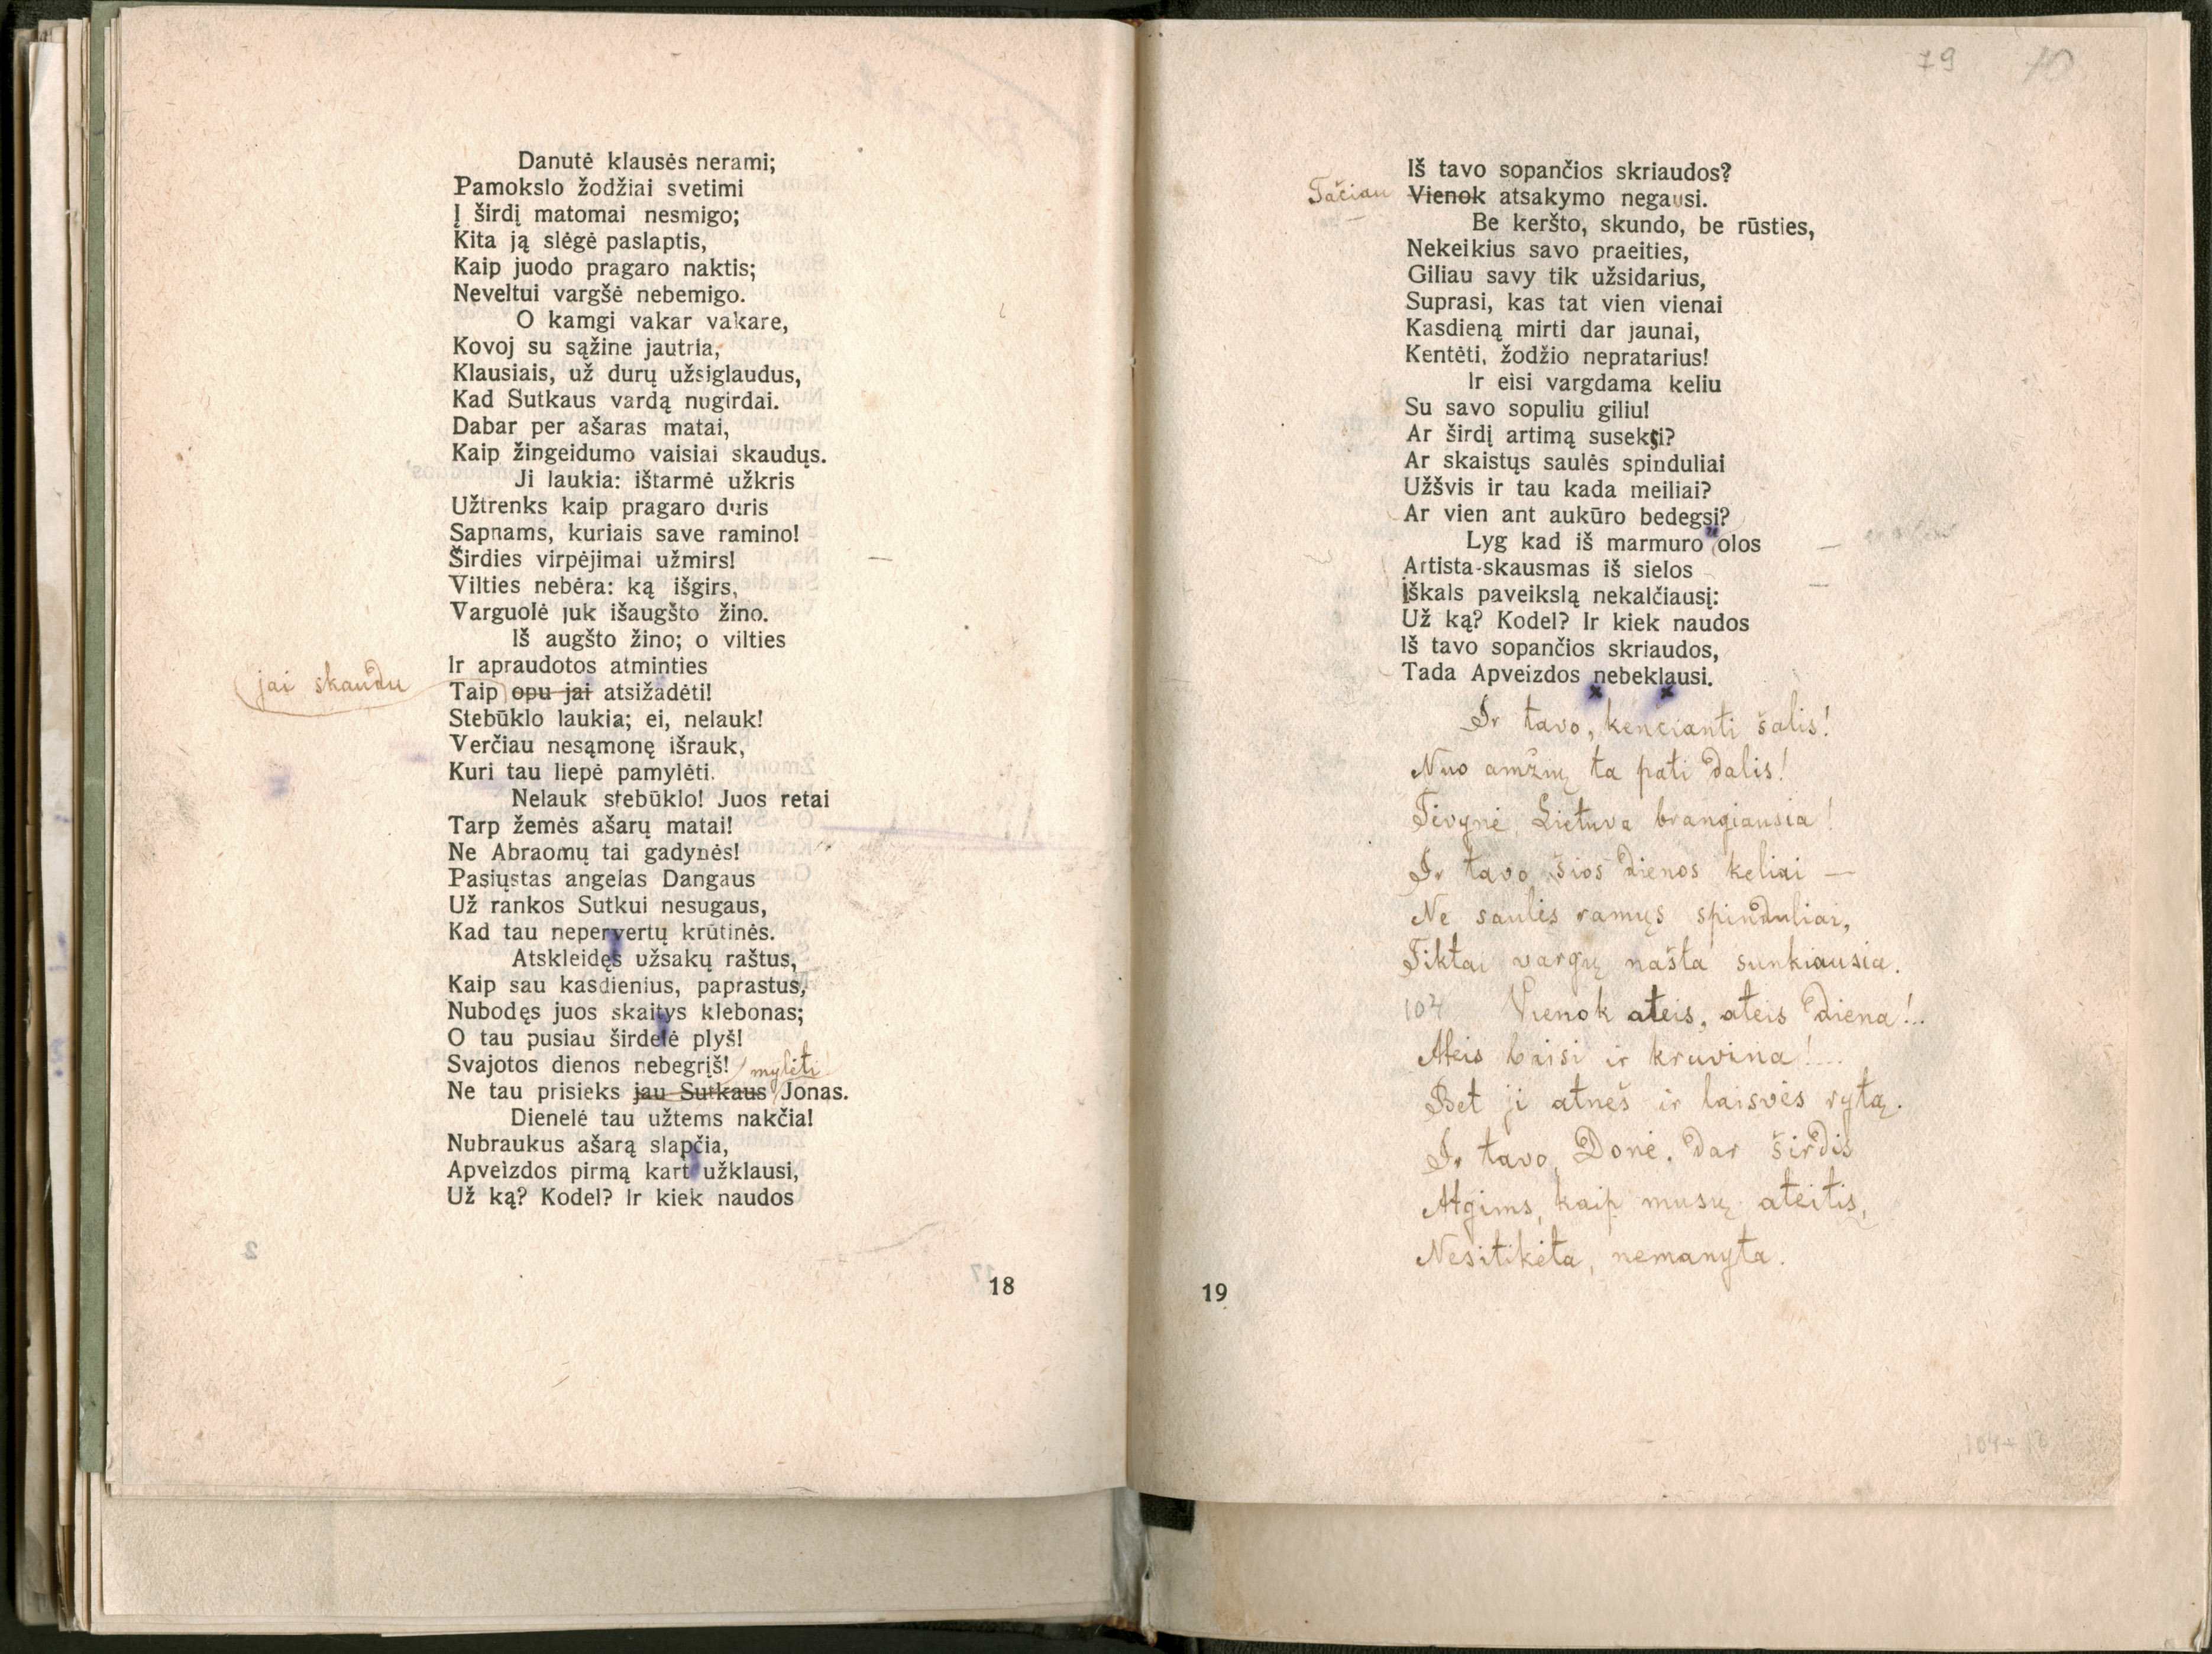 Danutė klausės nerami;
Pamokslo žodžiai svetimi
Į širdį matomai nesmigo;
Kita ją slėgė paslaptis,
Kaip juodo pragaro naktis;
Neveltui vargšė nebemigo.
O kamgi vakar vakare,
Kovoj su sąžine jautria,
Klausiais, už durų užsiglaudus,
Kad Sutkaus vardą nugirdai.
Dabar per ašaras matai,
Kaip žingeidumo vaisiai skaudųs.
Ji laukia: ištarmė užkris
Užtrenks kaip pragaro duris
Sapnams, kuriais save ramino!
Širdies virpėjimai užmirs!
Vilties nebėra: ką išgirs,
Varguolė juk išaugšto žino.
Iš augšto žino; o vilties
Ir apraudotos atminties
jai skaudu
Taip opu jai atsižadėti!
Stebūklo laukia; ei, nelauk!
Verčiau nesąmonę išrauk,
Kuri tau liepė pamylėti.
Nelauk stebūklo! Juos retai
Tarp žemės ašarų matai!
Ne Abraomų tai gadynės!
Pasiųstas angelas Dangaus
Už rankos Sutkui nesugaus,
Kad tau nepervertų krūtinės.
Atskleidęs užsakų raštus,
Kaip sau kasdienius, paprastus,
Nubodęs juos skaitys klebonas;
O tau pusiau širdelė plyš!
Svajotos dienos nebegrįš!
mylėti
Ne tau prisieks jau Sutkaus Jonas.
Dienelė tau užtems nakčia!
Nubraukus ašarą slapčia,
Apveizdos pirmą kart užklausi,
Už ką? Kodel? Ir kiek naudos
18
79 10
Iš tavo sopančios skriaudos?
Tačiau
Vienok atsakymo negausi.
Be keršto, skundo, be rūsties,
Nekeikius savo praeities,
Giliau savy tik užsidarius,
Suprasi, kas tat vien vienai
Kasdieną mirti dar jaunai,
Kentėti, žodžio nepratarius!
Ir eisi vargdama keliu
Su savo sopuliu giliu!
Ar širdį artimą suseksi?
Ar skaistųs saulės spinduliai
Užšvis ir tau kada meiliai?
Ar vien ant aukūro bedegsi?
Lyg kad iš marmuro uolos
Artista-skausmas iš sielos
Iškals paveikslą nekalčiausį:
Už ką? Kodel? Ir kiek naudos
Iš tavo sopančios skriaudos,
Tada Apveizdos nebeklausi.
Ir tavo, kenčianti šalis!
Nuo amžių ta pati dalis!
Tėvynė Lietuva brangiausia!
Ir tavo šios dienos keliai —
Ne saulės ramųs spinduliai,
Tiktai vargų našta sunkiausia.
104 Vienok ateis, ateis diena!..
Ateis baisi ir kruvina!...
Bet ji atneš ir laisvės rytą.
Ir tavo, Donė, dar širdis
Atgims, kaip musų ateitis,
Nesitikėta, nemanyta.
19